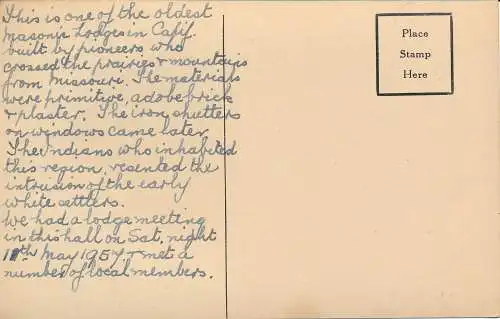 This is one of the oldest
Masonic Lodges in Calif.
built by pioneers who
crossed the prairies & mountains
from Missouri. The materials
were primitive, adobe brick
& plaster. The iron shutters
on windows came later.
The Indians who inhabited
this region, resented the
intrusion of the early
white settlers.
We had a lodge meeting
in this hall on Sat. night
11th May 1957. & met a
number of local members.
Place
Stamp
Here